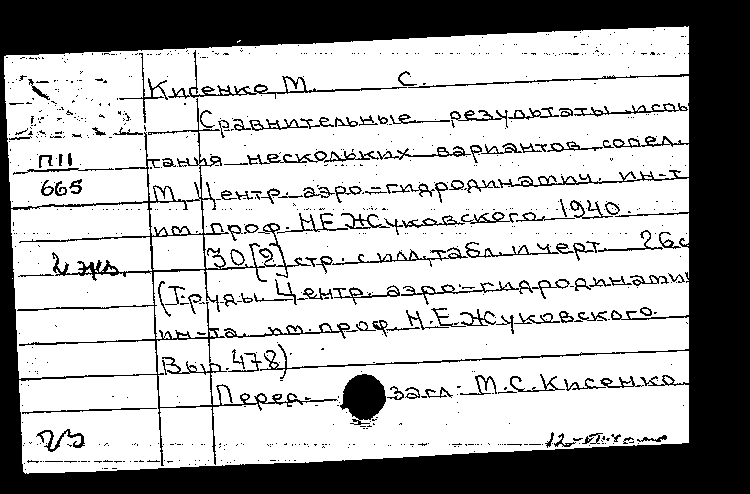 Кисенко М. С.
Сравнительные результаты испы
ПП тания нескольких вариантов сопел.
665 М., Центр. аэро-гидродинамич. ин-т
им. проф. Н.Е.Жуковского. 1940.
2 экз. 30[2] стр. с илл., табл. и черт. 26с
(Труды Центр. аэро-гидродинами
ин-та им. проф. Н.Е.Жуковского.
Вып. 478)
Перед загл: М.С.Кисенко